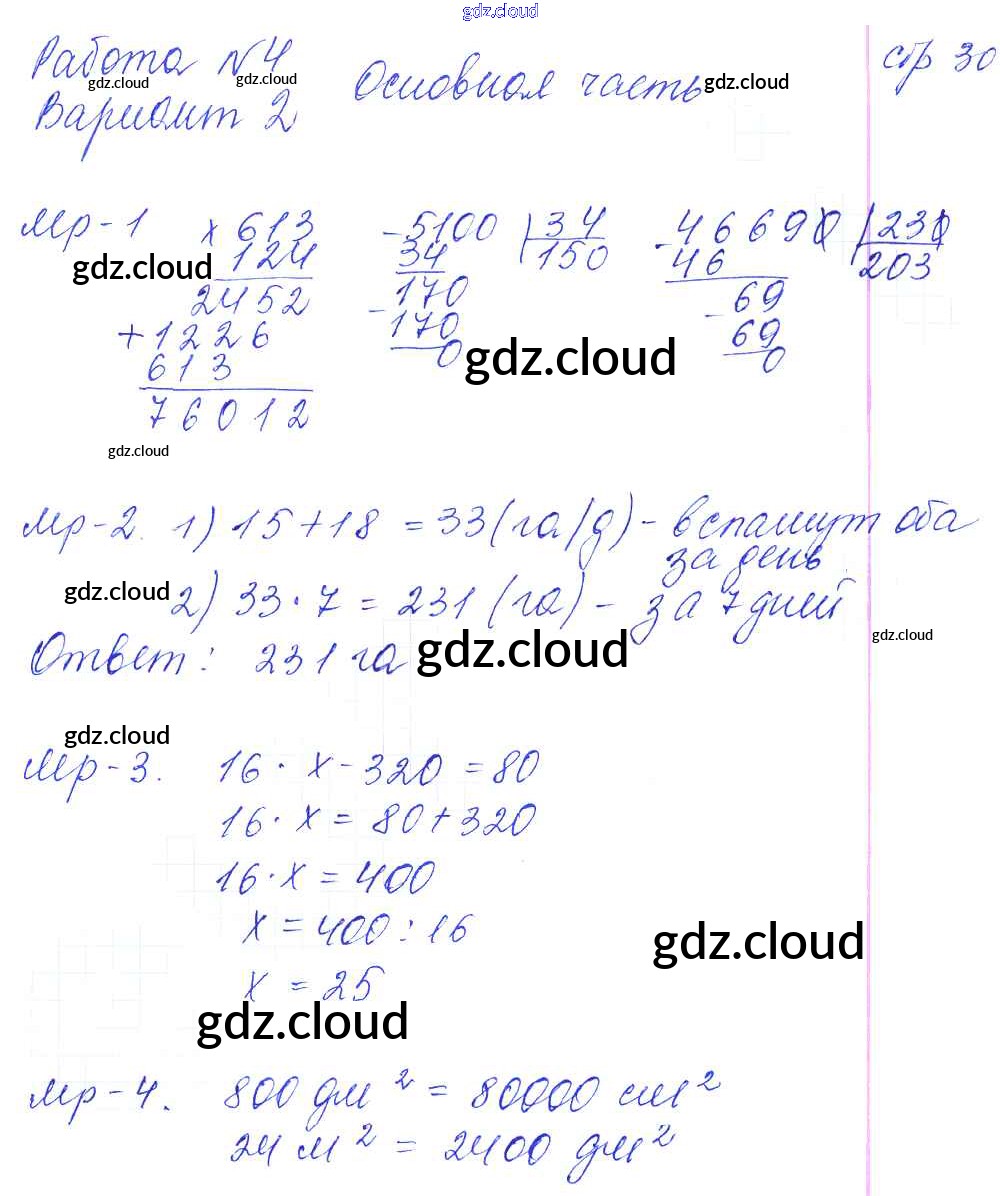 gdz.cloud
Работа №4 Основная часть стр 30
gdz.cloud gdz.cloud gdz.cloud
Вариант 2
Мр-1 × 613 - 5100 | 34 - 46690 | 230
124 34 150 46 203
gdz.cloud
2452 - 170 - 69
+ 1226 170 69
613 0 0
gdz.cloud
76012
gdz.cloud
Мр-2. 1) 15 + 18 = 33 (га/д) - вспашут оба
за день
gdz.cloud
2) 33 · 7 = 231 (га) - за 7 дней
gdz.cloud
Ответ: 231 га
gdz.cloud
gdz.cloud
Мр-3. 16 · x - 320 = 80
16 · x = 80 + 320
16 · x = 400
x = 400 : 16
gdz.cloud
x = 25
gdz.cloud
Мр-4. 800 дм² = 80000 см²
24 м² = 2400 дм²